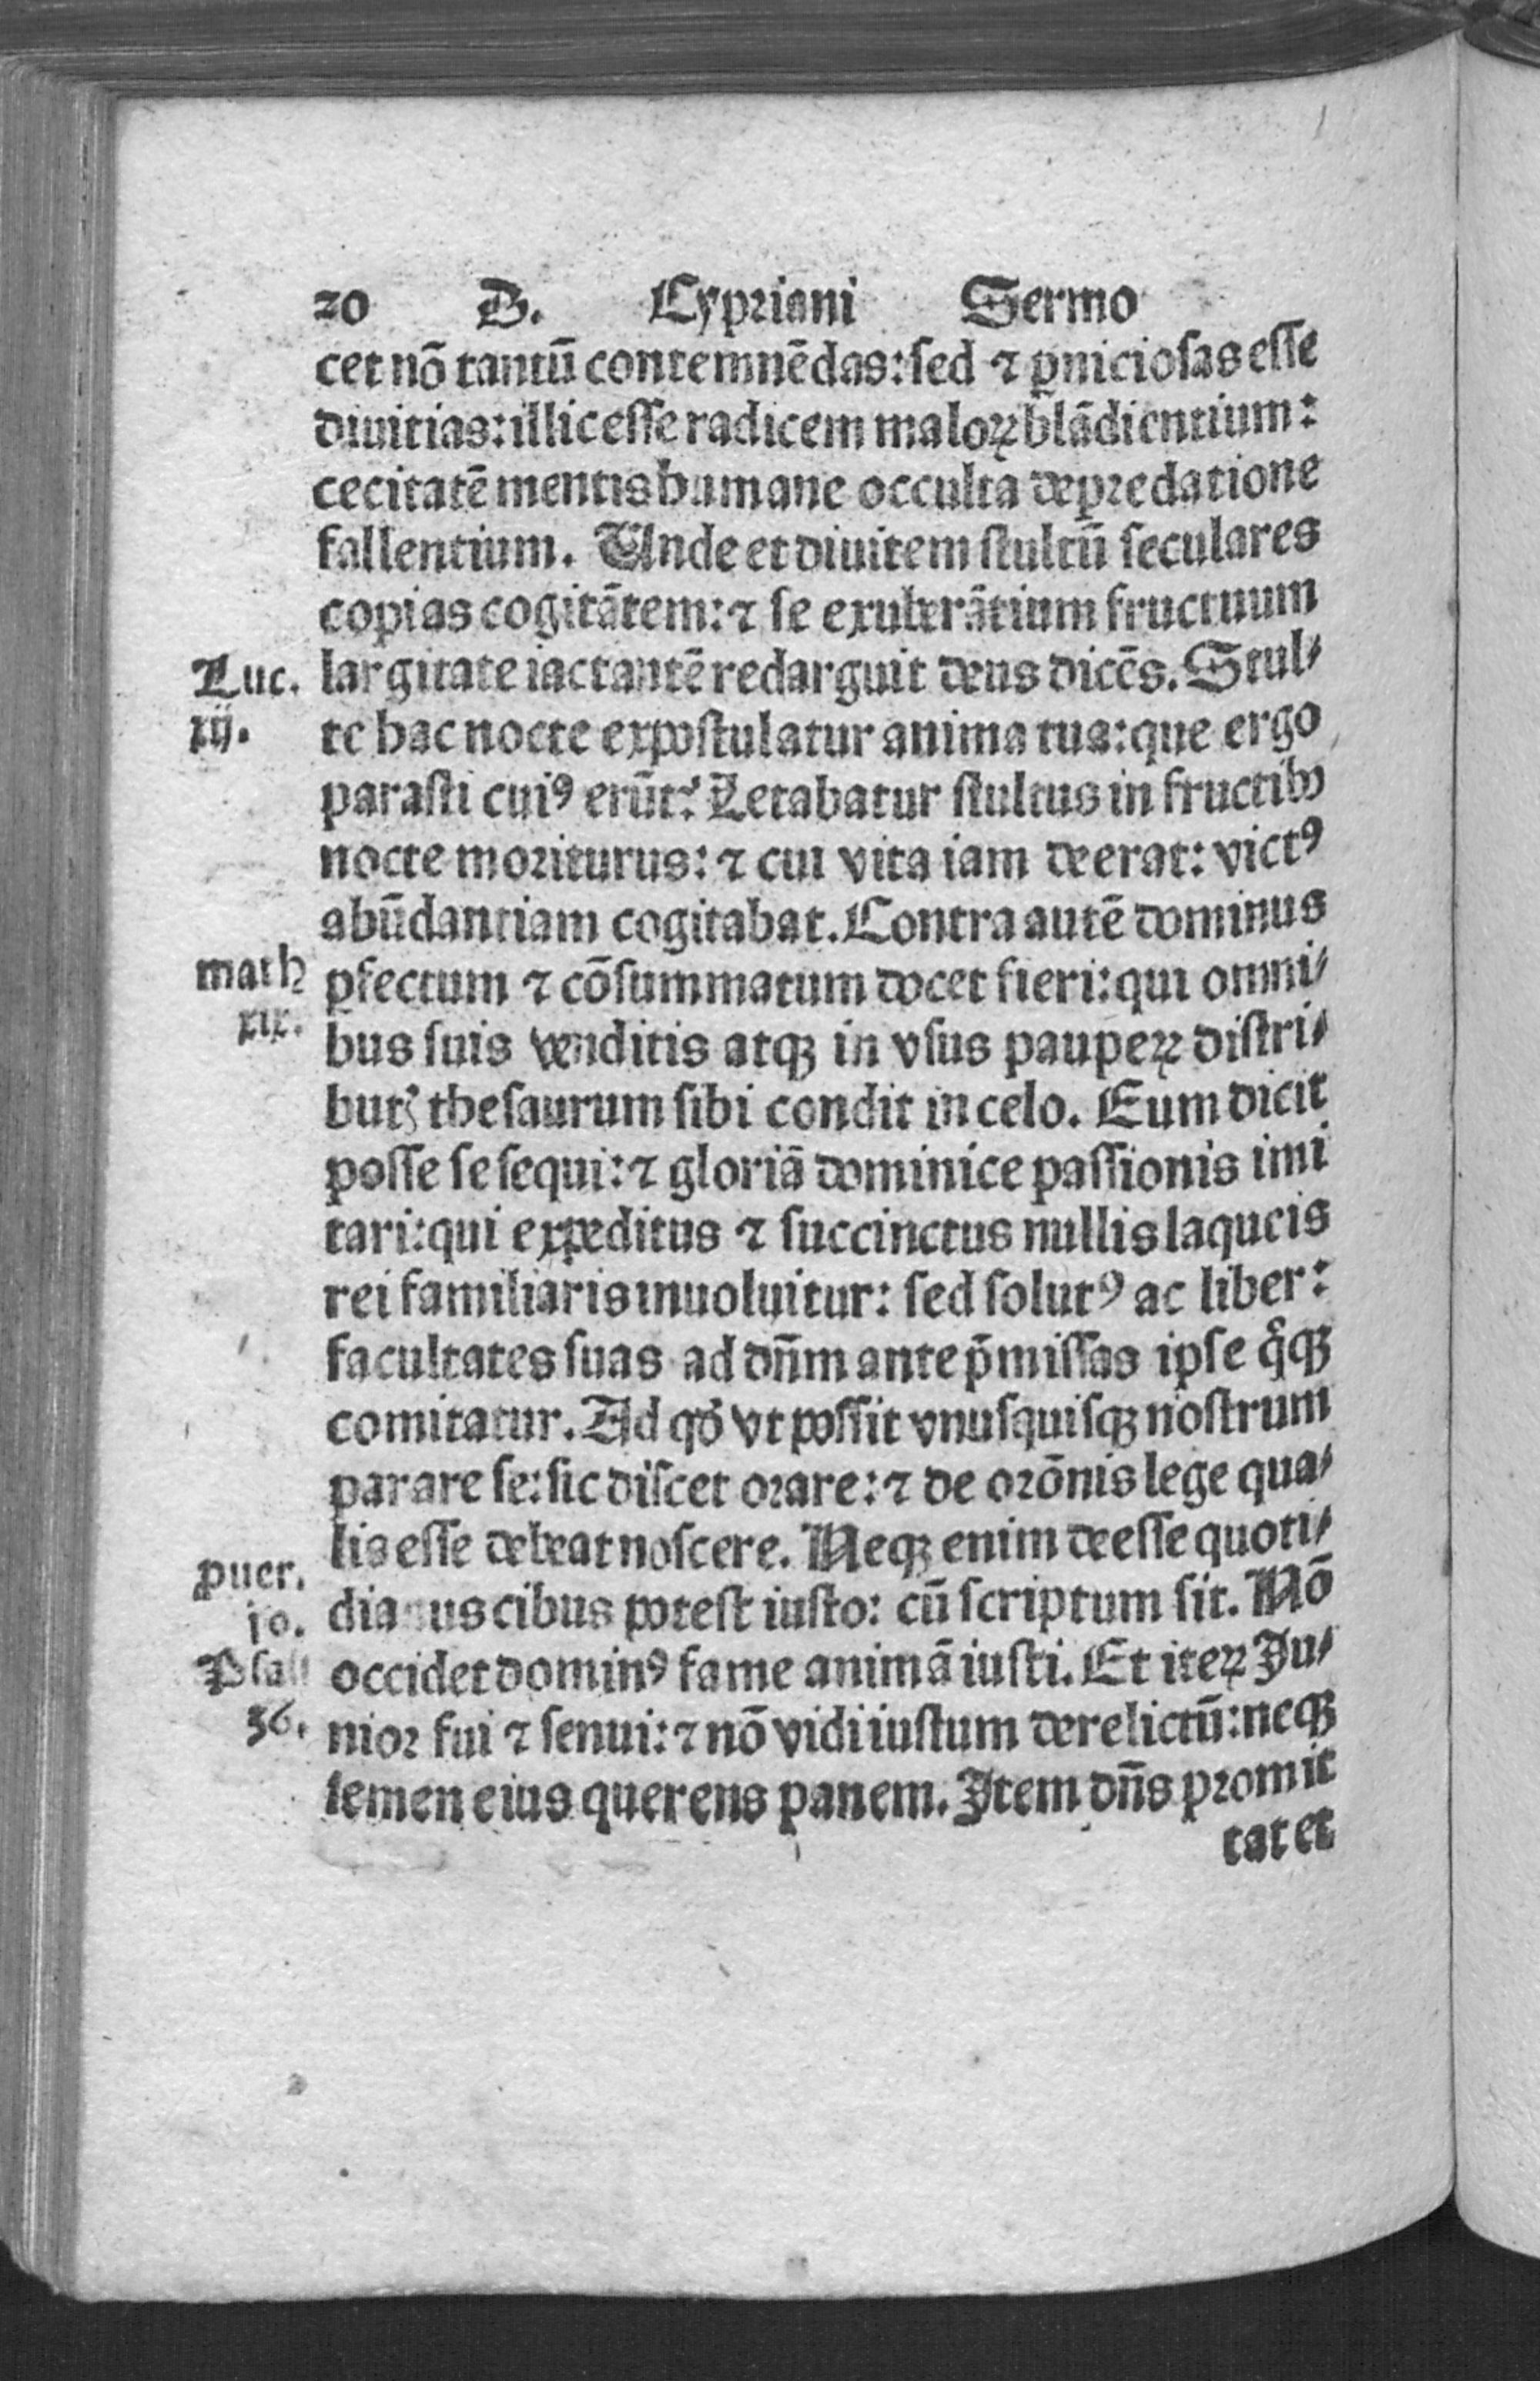 20 D. Cypriani Sermo
cet nō tantū contemnēdas: ſed ⁊ ꝑnicioſas eſſe
diuitias: illic eſſe radicem maloꝝ blādientium:
cecitatē mentis humane occulta depredatione
fallentium. Unde et diuitem ſtultū ſeculares
copias cogitātem: ⁊ ſe exuberātium fructuum
Luc. largitate iactantē redarguit deus dicēs. Stul⸗
xij. te hac nocte expoſtulatur anima tua: que ergo
paraſti cuiꝰ erūt? Letabatur ſtultus in fructibꝫ
nocte moriturus: ⁊ cui vita iam deerat: victꝰ
abūdantiam cogitabat. Contra autē dominus
math ꝑfectum ⁊ cōſummatum docet fieri: qui omni⸗
xix. bus ſuis venditis atqꝫ in vſus pauperꝝ diſtri⸗
butꝭ theſaurum ſibi condit in celo. Eum dicit
poſſe ſe ſequi: ⁊ gloriā dominice paſſionis imi
tari: qui expeditus ⁊ ſuccinctus nullis laqueis
rei familiaris inuoluitur: ſed ſolutꝰ ac liber:
facultates ſuas ad dn̄m ante p̄miſſas ipſe qͦqꝫ
comitatur. Ad qđ vt poſſit vnuſquiſqꝫ noſtrum
parare ſe: ſic diſcet orare: ⁊ de orōnis lege qua⸗
lis eſſe debeat noſcere. Neqꝫ enim deeſſe quoti⸗
puer.
10. dianus cibus poteſt iuſto: cū ſcriptum ſit. Nō
Pſal occidet dominꝰ fame animā iuſti. Et iterꝝ Ju⸗
36. nior fui ⁊ ſenui: ⁊ nō vidi iuſtum derelictū: neqꝫ
ſemen eius querens panem. Item dn̄s promit
tat et